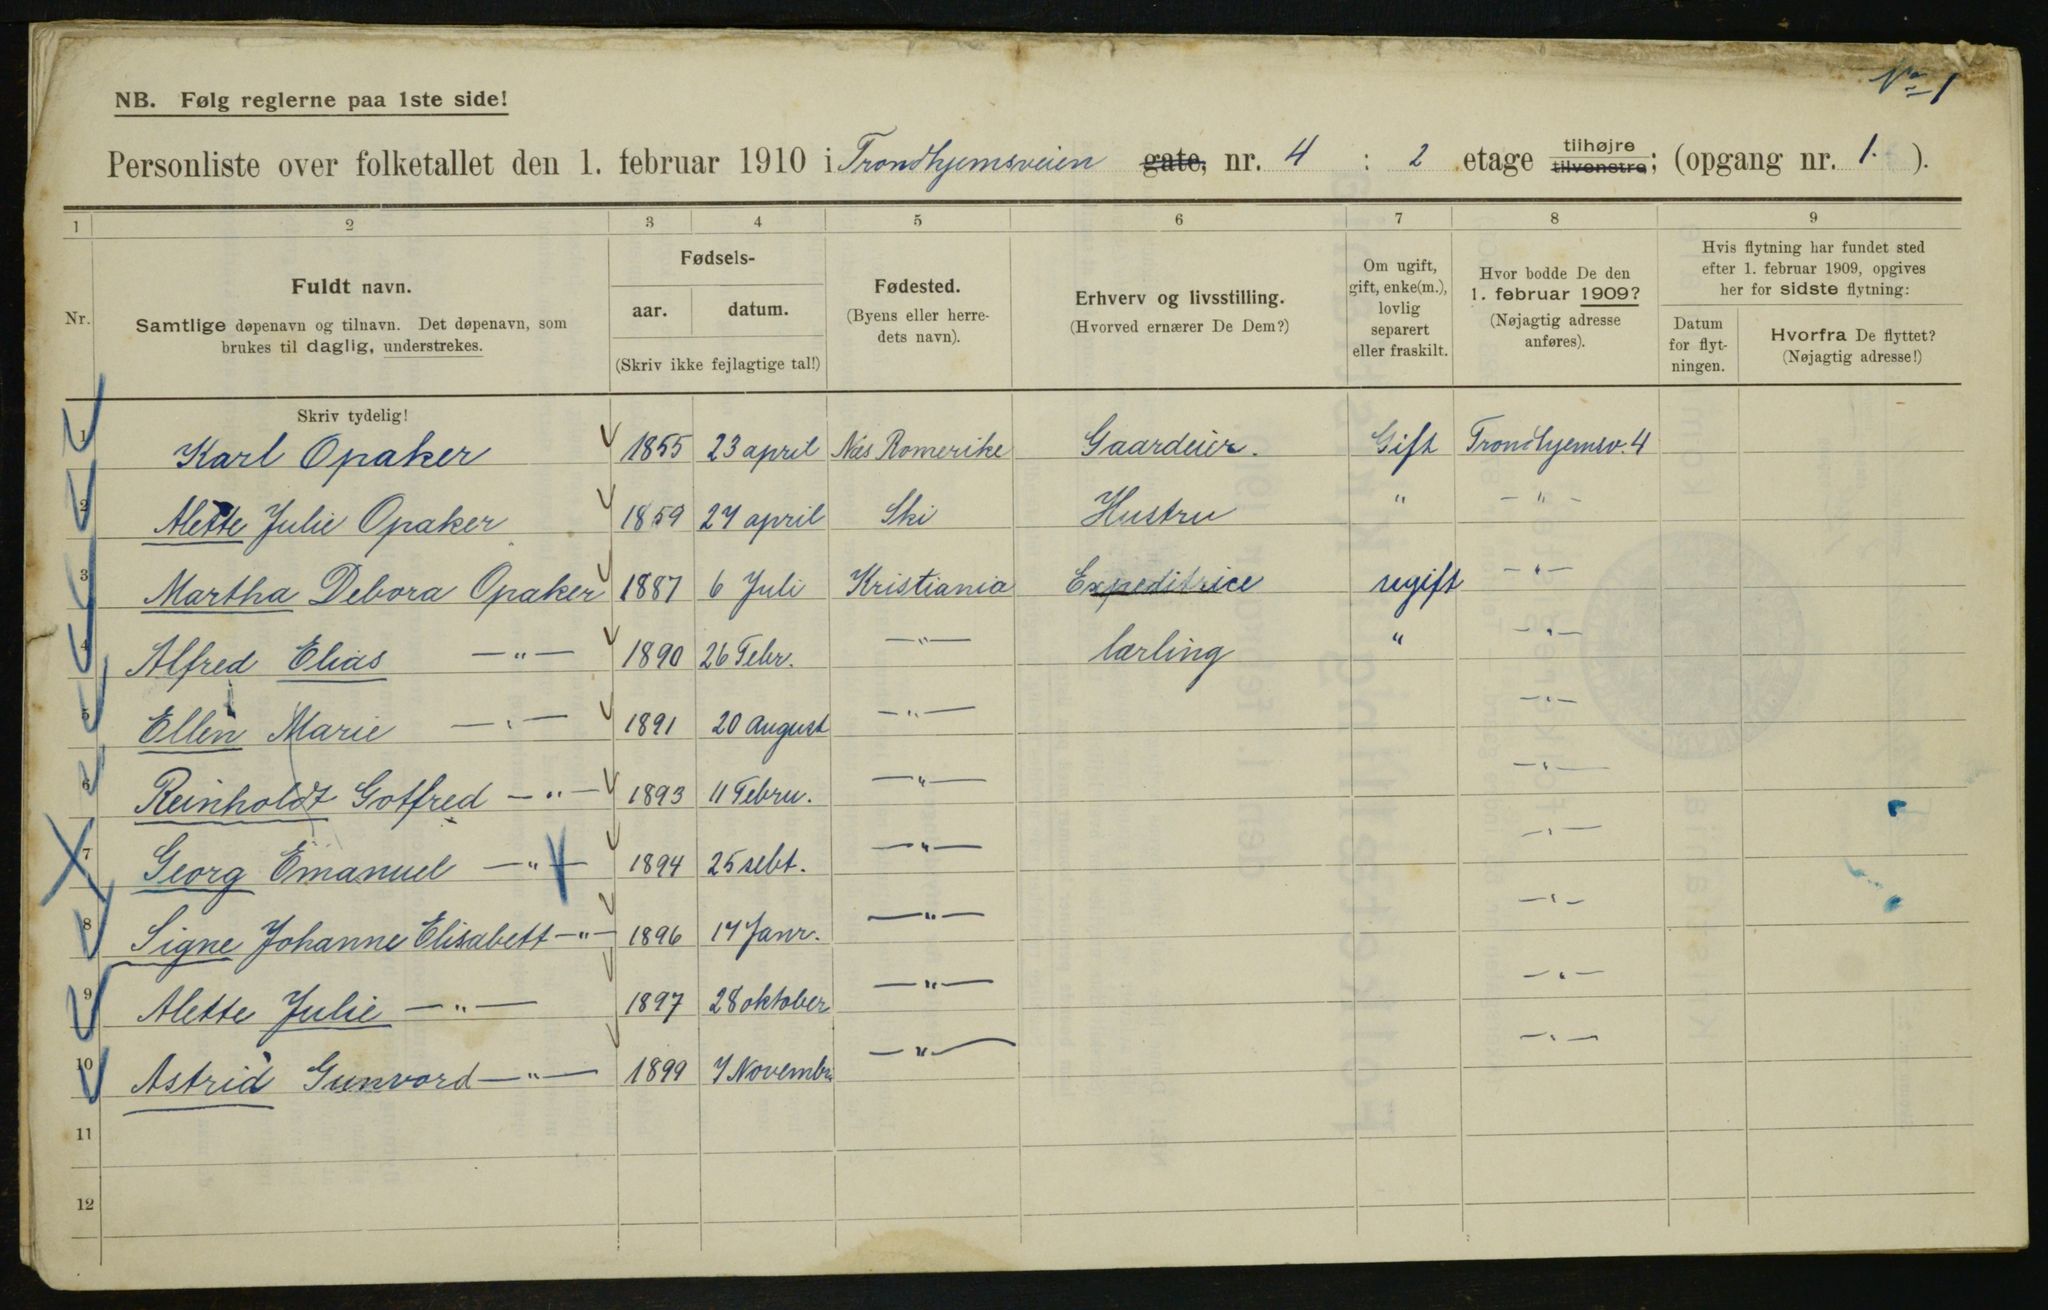 No 1
NB. Følg reglerne paa 1ste side!
Personliste over folketallet den 1. februar 1910 i Trondhjemsveien gate, nr. 4 : 2 etage tilhøjre tilvenstre; (opgang nr. 1. ).
1 2 3 4 5 6 7 8 9
Nr.
Fuldt navn.
Samtlige døpenavn og tilnavn. Det døpenavn, som
brukes til daglig, understrekes.
Skriv tydelig!
Fødsels-
aar. datum.
(Skriv ikke fejlagtige tal!)
Fødested.
(Byens eller herre-
dets navn).
Erhverv og livsstilling.
(Hvorved ernærer De Dem?)
Om ugift,
gift, enke(m.),
lovlig
separert
eller fraskilt.
Hvor bodde De den
1. februar 1909?
(Nøjagtig adresse
anføres).
Hvis flytning har fundet sted
efter 1. februar 1909, opgives
her for sidste flytning:
Datum
for flyt-
ningen.
Hvorfra De flyttet?
(Nøjagtig adresse!)
1 Karl Opaker 1855 23 april Næs Romerike Gaardeier. Gift Trondhjemsv. 4
2 Alette Julie Opaker 1859 27 april Ski Hustru " — " —
3 Martha Debora Opaker 1887 6 Juli Kristiania Expeditrice ugift — " —
4 Alfred Elias — " — 1890 26 Febr. — " — lærling " — " —
5 Ellen Marie — " — 1891 20 august — " — — " —
6 Reinholdt Gotfred — " — 1893 11 Febru. — " — — " —
7 Georg Emanuel — " — 1894 25 sebt. — " — — " —
8 Signe Johanne Elisabett — " — 1896 17 Janr. — " — — " —
9 Alette Julie — " — 1897 28 oktober — " — — " —
10 Astrid Gunvord — " — 1899 7 Novembr — " — — " —
11
12